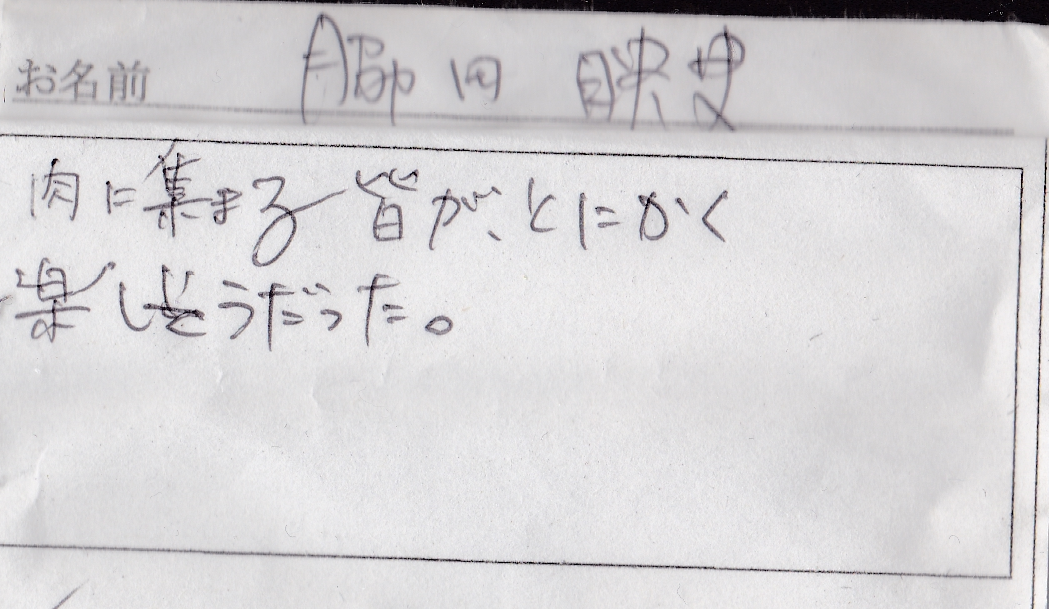 お名前
肉に集まる皆が、とにかく
楽しそうだった。